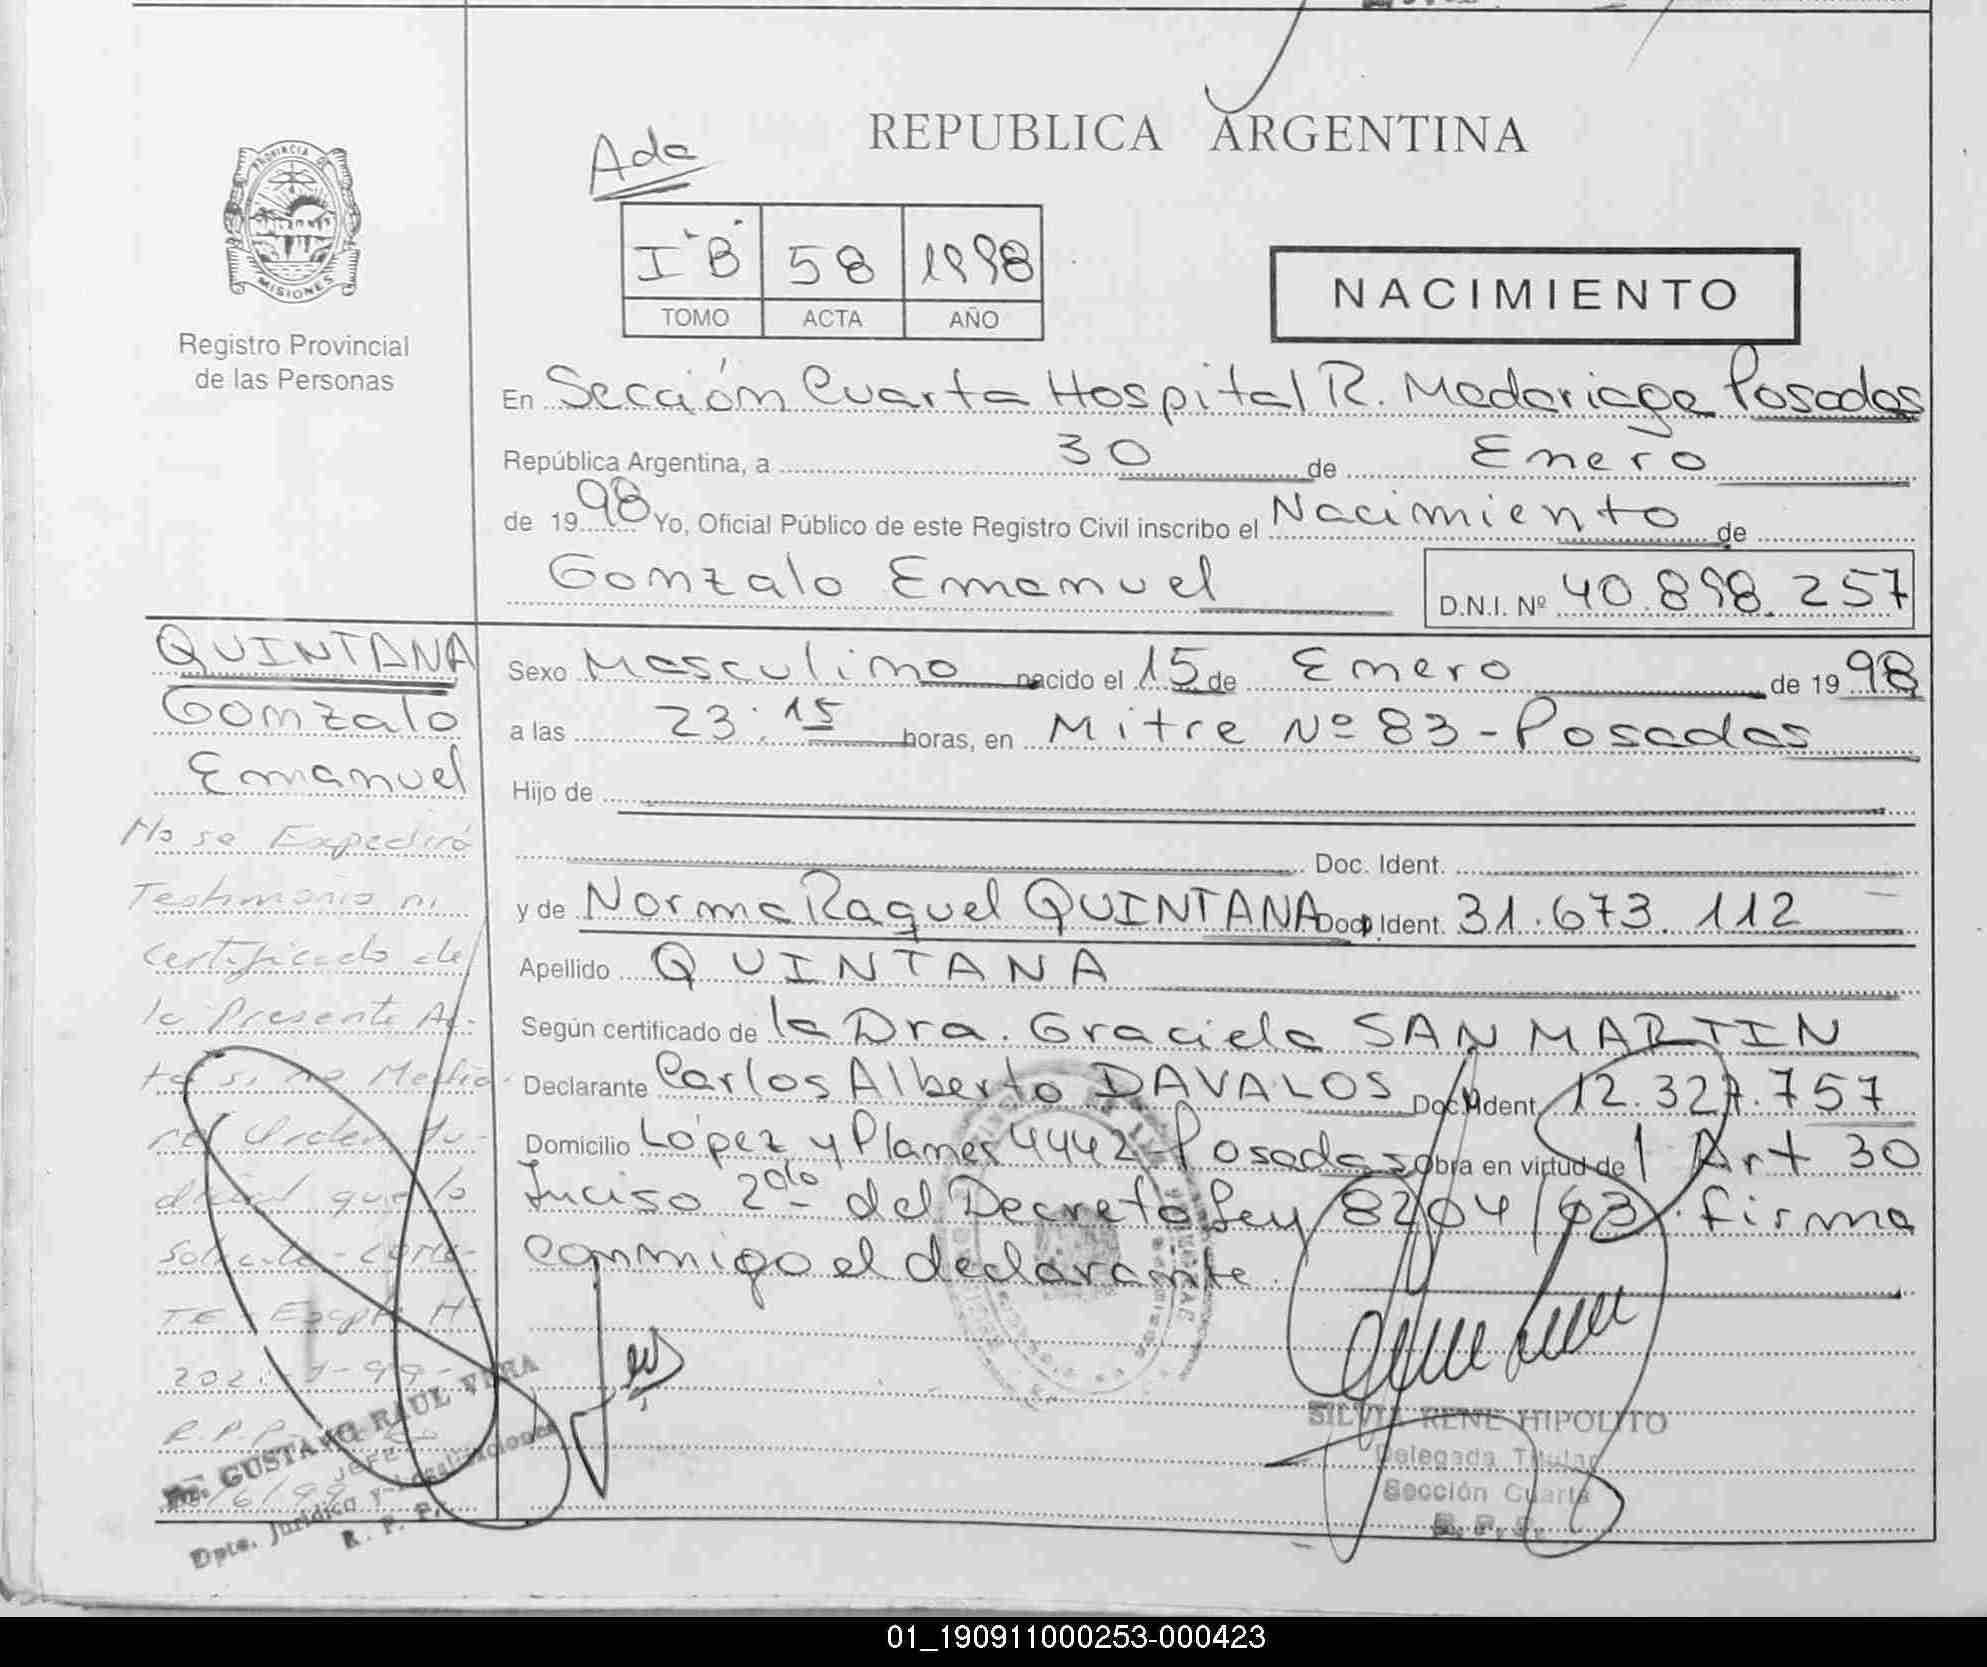 REPUBLICA ARGENTINA
Ada
PROVINCIA DE
MISIONES
Registro Provincial
de las Personas
I "B" 58 1998
TOMO ACTA AÑO
NACIMIENTO
En Sección Cuarta Hospital R. Madariaga Posadas
República Argentina, a 30 de Enero
de 1998 Yo, Oficial Público de este Registro Civil inscribo el Nacimiento de
Gonzalo Emanuel D.N.I. Nº 40.898.257
QUINTANA
Gonzalo
Emanuel
No se Expedirá
Testimonio ni
certificado de
la Presente Ac-
ta si no Media
re Orden Ju-
dicial que lo
solicite - CONS-
TE - Expte Nº
R.P.P.
Dr. GUSTAVO RAUL VERA
JEFE
Dpto. Jurídico y Legalizaciones
R. P. P.
Sexo Masculino nacido el 15 de Enero de 1998
a las 23:15 horas, en Mitre Nº 83 - Posadas
Hijo de
Doc. Ident.
y de Norma Raquel QUINTANA Doc. Ident. 31.673.112
Apellido QUINTANA
Según certificado de la Dra. Graciela SAN MARTIN
Declarante Carlos Alberto DAVALOS Doc. Ident. 12.327.757
Domicilio López y Planes 4442 - Posadas Obra en virtud del Art 30
Inciso 2do del Decreto Ley 8204/63. firma
conmigo el declarante.
SILVIA RENE HIPOLITO
Delegada Titular
Sección Cuarta
R. P. P.
01_190911000253-000423